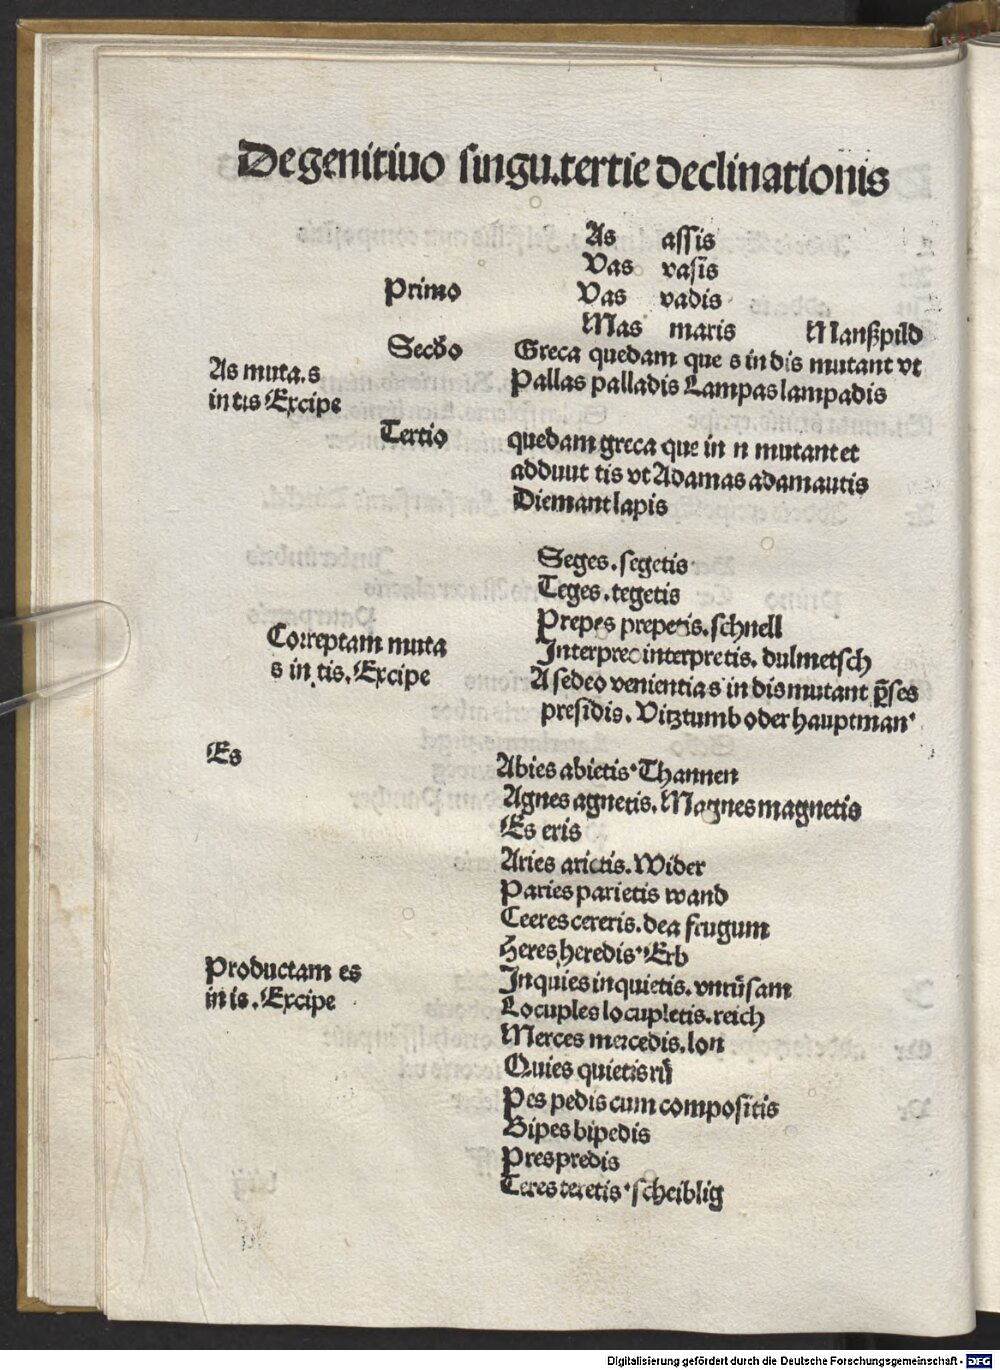 De genitiuo singu. tertie declinationis
As assis
Vas vasis
Primo Vas vadis
Mas maris Manßpild
Secōdo Greca quedam que s in dis mutant vt
As muta. s Pallas palladis Lampas lampadis
in tis Excipe
Tertio quedam greca que in n mutant et
adduut tis vt Adamas adamautis
Diemant lapis
Seges. segetis
Teges. tegetis
Prepes prepetis. schnell
Correptam muta Interpres interpretis. dulmetsch
s in tis. Excipe A sedeo venientia s in dis mutant p̄ses
presidis. Vitztumb oder hauptman
Es Abies abietis Thannen
Agnes agnetis. Magnes magnetis
Es eris
Aries arietis. Wider
Paries parietis wand
Ceeres cereris. dea frugum
Heres heredis Erb
Productam es Inquies inquietis. vnrůsam
in is. Excipe Locuples locupletis. reich
Merces mercedis. lon
Quies quietis rů
Pes pedis cum compositis
Bipes bipedis
Pres predis
Teres teretis scheiblig
Digitalisierung gefördert durch die Deutsche Forschungsgemeinschaft - DFG